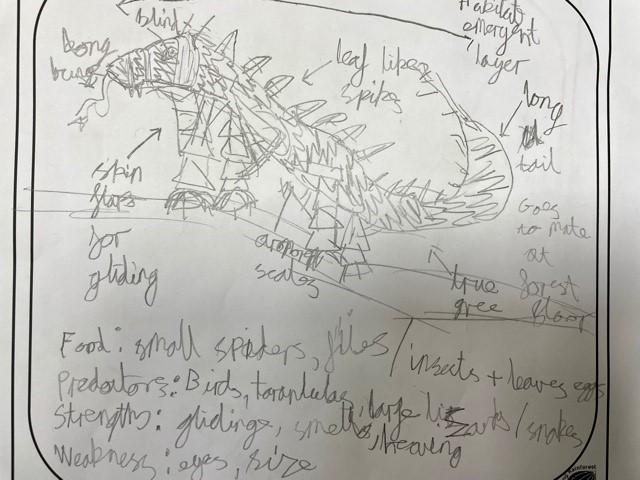 blind
Habitat
emergent
layer
leaf likes
spikes
long
tail
skin
flaps
for
gliding
scales
true
Goes
to mate
at
forest
floor
Food: small spiders, flies / insects + leaves eggs
Predators: Birds, tarantulas, large lizards / snakes
Strengths: glidings, smells, hearing
Weakness: eyes, size
Rainforest